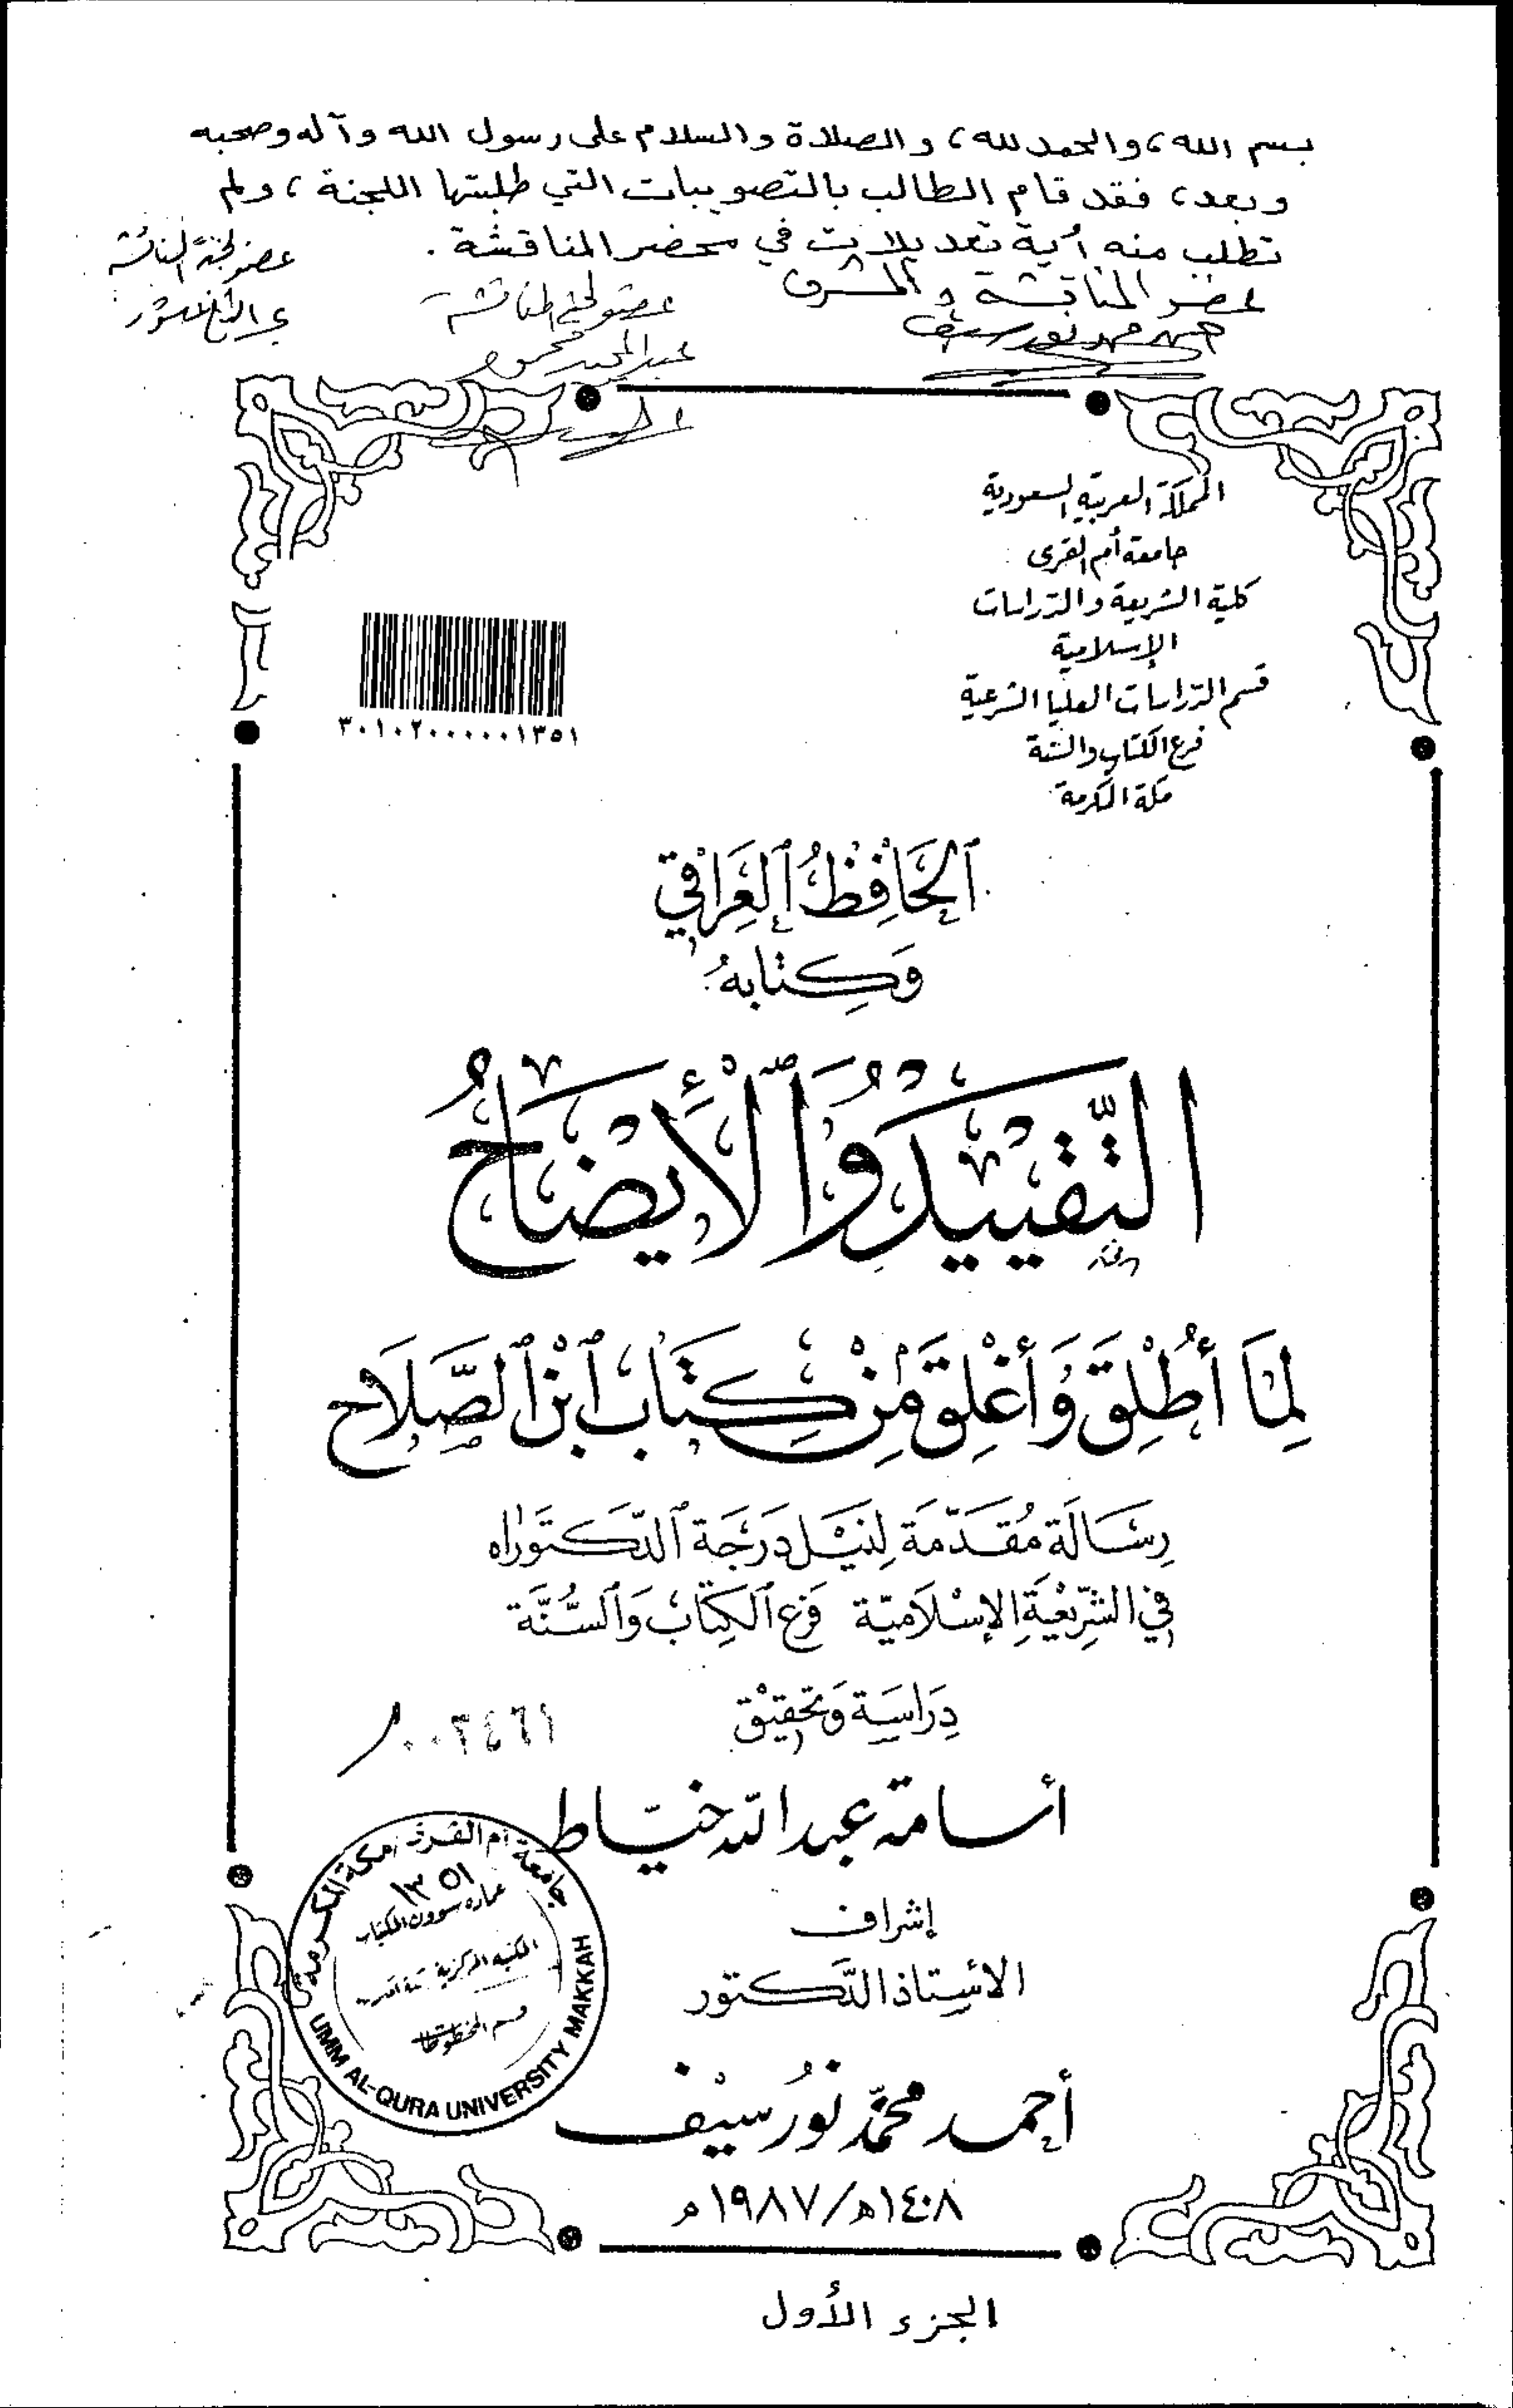 بسم الله، والحمد لله، والصلاة والسلام على رسول الله وآله وصحبه
وبعد، فقد قام الطالب بالتصويبات التي طلبتها اللجنة، ولم
تطلب منه أية تعديلات في محضر المناقشة.
عضو المناقشة والمشرف
عضو لجنة المناقشة
عضو لجنة المناقشة
المملكة العربية السعودية
جامعة أم القرى
كلية الشريعة والدراسات
الإسلامية
قسم الدراسات العليا الشرعية
فرع الكتاب والسنة
مكة المكرمة
٣٠١٠٢٠٠٠٠٠٠١٣٥١
ٱلحَافِظُ ٱلعِرَاقِي
وَكِتَابهُ
التَّقْيِيدُ وَٱلْأِيضَاحُ
لِمَا أُطْلِقَ وَأُغْلِقَ مِنْ كِتَابِ ٱبْنِ ٱلصَّلَاح
رِسَالَة مُقَدَّمَة لِنَيْل دَرَجَة ٱلدّكتَورَاه
فِي الشَّرِيْعَةِ الإسْلَاميّة فَرْع ٱلكِتَابِ وَٱلسُّنَّة
دِرَاسَة وَتَحقِيْق
٠٠٢٤٦١
أسامة عبد الله خيّاط
إشراف
الأسْتاذ الدَّكتور
أحمد محمَّد نُور سَيْف
١٤٠٨هـ/١٩٨٧م
جامعة أم القرى مكة المكرمة
١٣٥١
عمادة شؤون المكتبات
المكتبة المركزية
قسم المخطوطات
UMM AL-QURA UNIVERSITY MAKKAH
الجزء الأول